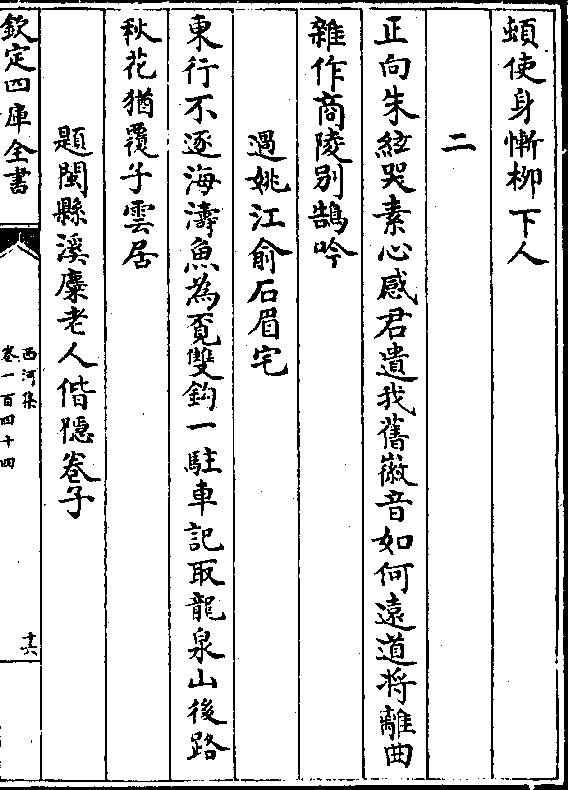 頓使身慚柳下人
二
正向朱絃哭素心感君遺我舊徽音如何遠道將離曲
雜作商陵别鵠吟
過姚江俞石眉宅
東行不逐海濤魚為覔雙鈎一駐車記取龍泉山後路
秋花猶覆子雲居
題閩縣溪麋老人偕隱巻子
欽定四庫全書
西河集
卷一百四十四
十六